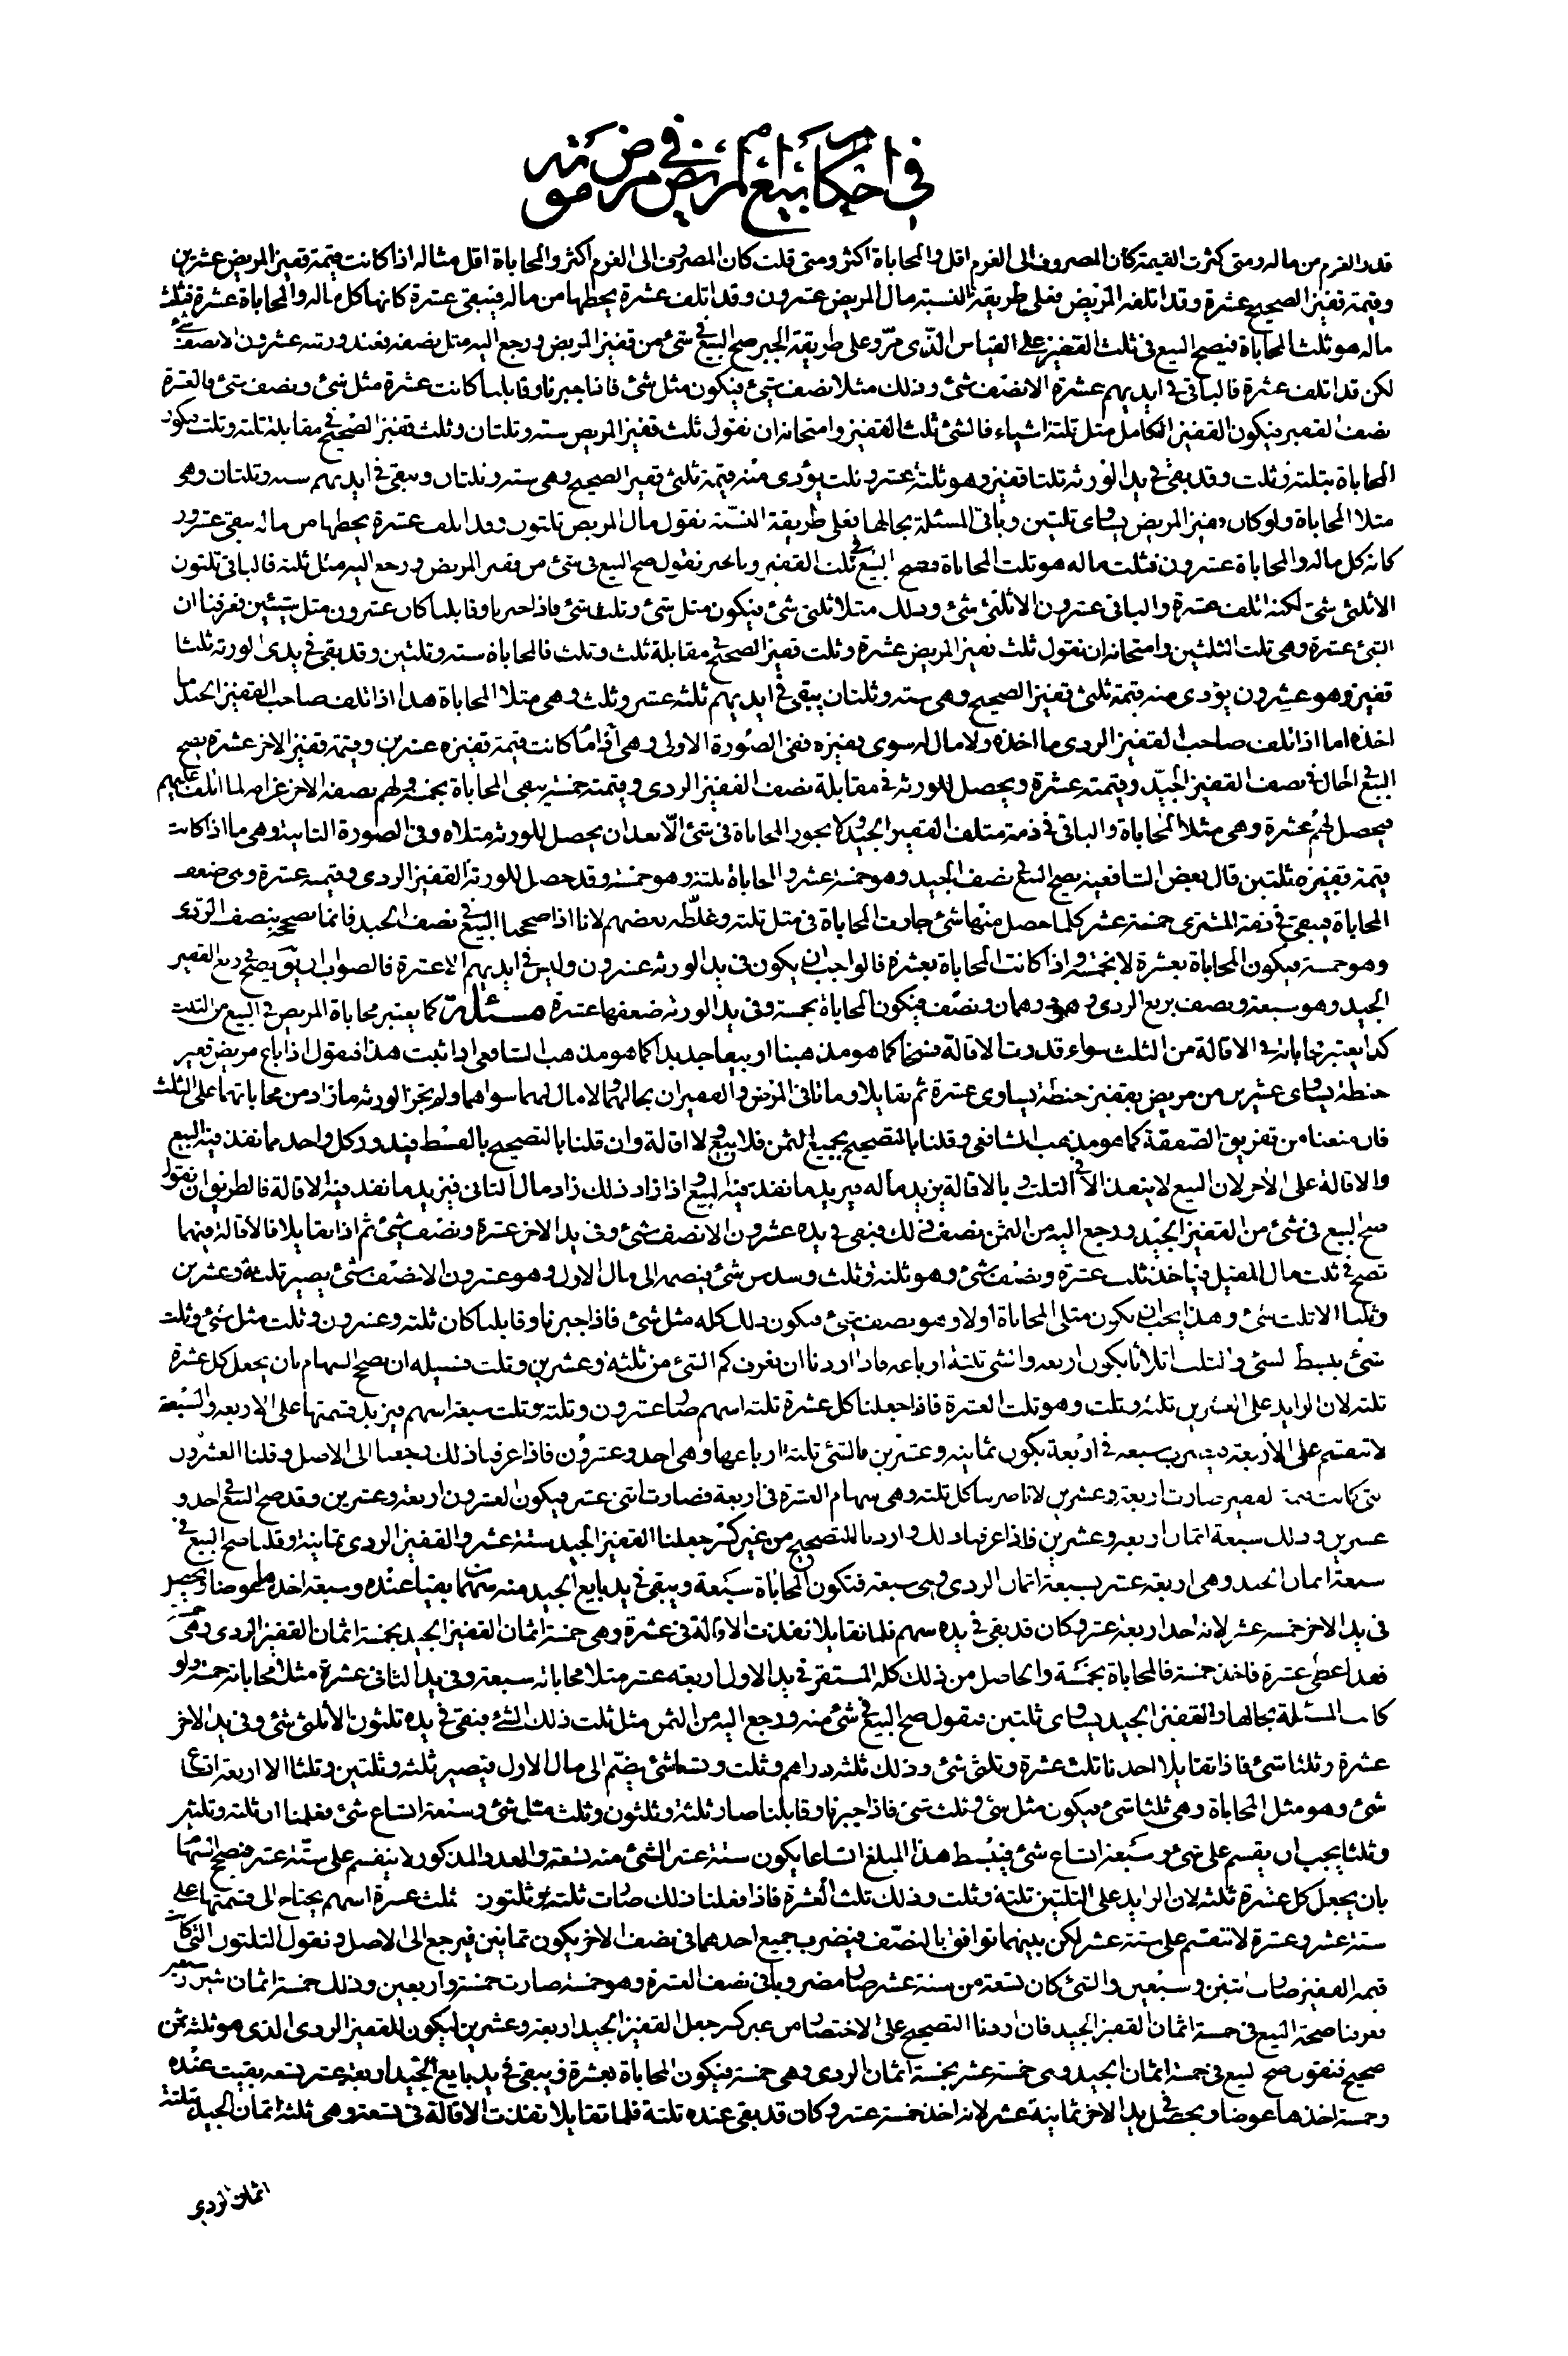 في احكام بيع المريض في مرض موته
قدر الغرم من ماله ومتى كثرت القيمة كان المصروف الى الغرم اقل والمحاباة اكثر ومتى قلت كان المصروف الى الغرم اكثر والمحاباة اقل مثاله اذا كانت قيمة قفيز المريض عشرين
وقيمة قفيز الصحيح عشرة وقد اتلفه المريض فعلى طريقة النسبة مال المريض عشرون وقد اتلف عشرة يحطها من ماله فيبقى عشرة كانها كل ماله والمحاباة عشرة فثلث
ماله هو ثلث المحاباة فيصح البيع في ثلث القفيز على القياس الذي مر وعلى طريقة الجبر صح البيع في شئ من قفيز المريض ورجع اليه مثل نصفه فعند ورثته عشرون الا نصف شئ
لكن قد اتلف عشرة فالباقي في ايديهم عشرة الا نصف شئ وذلك مثلا نصف شئ فيكون مثل شئ فاذا جبرنا وقابلنا كانت عشرة مثل شئ ونصف شئ فالعشرة
نصف القفيز فيكون القفيز الكامل مثل ثلثة اشياء فالشئ ثلث القفيز وامتحانه ان نقول ثلث قفيز المريض ستة وثلثان وثلث قفيز الصحيح في مقابلة ثلثه وثلث فيكون
المحاباة بثلثة وثلث وقد بقي في يد الورثة ثلثا قفيز وهو ثلثة عشر وثلث يؤدى منه قيمة ثلثي قفيز الصحيح وهي ستة وثلثان ويبقى في ايديهم ستة وثلثان وهو
مثلا المحاباة ولو كان قفيز المريض يساوي ثلثين وباقي المسئلة بحالها فعلى طريقة النسبة نقول مال المريض ثلثون وقد اتلف عشرة يحطها من ماله يبقى عشرون
كانه كل ماله والمحاباة عشرون فثلث ماله هو ثلث المحاباة فيصح البيع في ثلث القفيز وبالجبر نقول صح البيع في شئ من قفيز المريض ورجع اليه مثل ثلثه فالباقي ثلثون
الا ثلثي شئ لكنه اتلف عشرة والباقي عشرون الا ثلثي شئ وذلك مثلا ثلثي شئ فيكون مثل شئ وثلث شئ فاذا جبرنا وقابلنا كان عشرون مثل شيئين فعرفنا ان
الشئ عشرة وهي ثلث الثلثين وامتحانه ان نقول ثلث قفيز المريض عشرة وثلث قفيز الصحيح في مقابلة ثلث وثلث فالمحاباة ستة وثلثين وقد بقي في يدي الورثة ثلثا
قفيز وهو عشرون يؤدى منه قيمة ثلثي قفيز الصحيح وهي ستة وثلثان يبقى في ايديهم ثلثة عشر وثلث وهي مثلا المحاباة هذا اذا تلف صاحب القفيز الجيد ما
اخذه اما اذا تلف صاحب القفيز الردي ما اخذه ولا مال له سوى قفيزه ففي الصورة الاولى وهي اذا ما كانت قيمة قفيزه عشرين وقيمة قفيز الاخر عشرة يصح
البيع في الحال في نصف القفيز الجيد وقيمته عشرة ويحصل للورثة في مقابلة نصف القفيز الردي وقيمته خمسة يبقى المحاباة بخمسة ولهم نصفه الاخر غرامة لما اتلف عليهم
فيحصل لهم عشرة وهي مثلا المحاباة والباقي في ذمة متلف القفيز الجيد ولا يجوز المحاباة في شئ الا بعد ان يحصل للورثة مثلاه وفي الصورة الثانية وهي ما اذا كانت
قيمة قفيزه ثلثين قال بعض الشافعية يصح البيع في نصف الجيد وهو خمسة عشر والمحاباة بثلثه وهو خمسة وقد حصل للورثة القفيز الردي وقيمته عشرة وهي ضعف
المحاباة فيبقى في ذمة المشتري خمسة عشر كلما حصل منها شئ جازت المحاباة في مثل ثلثه وغلطه بعضهم لانا اذا صححنا البيع في نصف الجيد فانما يصح بنصف الردي
وهو خمسة فيكون المحاباة بعشرة لا بخمسة واذا كانت المحاباة بعشرة فالواجب ان يكون في يد الورثة عشرون وليس في ايديهم الا عشرة فالصواب ان يق يصح في ربع القفيز
الجيد وهو سبعة ونصف بربع الردي وهو درهمان ونصف فيكون المحاباة بخمسة وفي يد الورثة ضعفها عشرة مسئلة كما يعتبر محاباة المريض في البيع من الثلث
كذا يعتبر محاباته في الاقالة من الثلث سواء قدرت الاقالة فسخا كما هو مذهبنا او بيعا جديدا كما هو مذهب الشافعي اذا ثبت هذا فنقول اذا باع مريض قفيز
حنطة يساوي عشرين من مريض بقفيز حنطة يساوي عشرة ثم تقايلا وماتا في المرض والقفيزان بحالهما لا مال لهما سواهما ولم يجز الورثة ما زاد من محاباتهما على الثلث
فان منعنا من تفريق الصفقة كما هو مذهب الشافعي وقلنا بالتصحيح بجميع الثمن فلا بيع ولا اقالة وان قلنا بالتصحيح بالقسط فيدور كل واحد مما نفذ فيه البيع
والاقالة على الاخر لان البيع لا ينفذ الا في الثلث وبالاقالة يزيد ماله فيزيد ما نفذ فيه البيع واذا زاد ذلك زاد مال الثاني فيزيد ما نفذ فيه الاقالة فالطريق ان نقول
صح البيع في شئ من القفيز الجيد ورجع اليه من الثمن نصف ذلك فبقي في يده عشرون الا نصف شئ وفي يد الاخر عشرة ونصف شئ ثم اذا تقايلا فالاقالة فيهما
تصح في ثلث مال المقيل فياخذ ثلث عشرة ونصف شئ وهو ثلثة وثلث وسدس شئ فيضمه الى مال الاول وهو عشرون الا نصف شئ يصير ثلثة وعشرين
وثلثا الا ثلث شئ وهذا يجب ان يكون مثلي المحاباة اولا وهو نصف شئ فيكون ذلك كله مثل شئ فاذا جبرنا وقابلنا كان ثلثة وعشرون وثلث مثل شئ وثلث
شئ يبسط الشئ والثلث اثلاثا يكون اربعة والشئ ثلثة ارباعه فاذا اردنا ان نعرف كم الشئ من ثلثة وعشرين وثلث فسبيله ان يصح السهام بان يجعل كل عشرة
ثلثة لان الزايد على العشرين ثلثة وثلث وهو ثلث العشرة فاذا جعلنا كل عشرة ثلثة اسهم صارت عشرون وثلثة وثلث سبعة اسهم فيزيد قسمتها على الاربعة والسبعة
لا تنقسم على الاربعة فيضرب سبعة في اربعة يكون ثمانية وعشرين فالشئ ثلثة ارباعها وهي احد وعشرون فاذا عرفنا ذلك رجعنا الى الاصل وقلنا العشرون
التي كانت قيمة القفيز صارت اربعة وعشرين لانا ضربنا كل ثلثة وهي سهام العشرة في اربعة فصارت اثنى عشر فيكون العشرون اربعة وعشرين وقد صح البيع في احد و
عشرين وذلك سبعة اثمان اربعة وعشرين فاذا عرفنا ذلك واردنا التصحيح من غير كسر جعلنا القفيز الجيد ستة عشر والقفيز الردي ثمانية وقلنا صح البيع في
سبعة اثمان الجيد وهي اربعة عشر بسبعة اثمان الردي وهي سبعة فتكون المحاباة سبعة ويبقى في يد بايع الجيد منه سهمان بقيتا عنده وسبعة اخذها عوضا ويحصل
في يد الاخر خمسة عشر لانه اخذ اربعة عشر وكان قد بقي في يده سهم فلما تقايلا نفذت الاقالة في عشرة وهي خمسة اثمان القفيز الجيد بخمسة اثمان القفيز الردي وهي خمسة
فهذا اعطى عشرة فاخذ خمسة فالمحاباة بخمسة والحاصل من ذلك كله المستقر في يد الاول اربعة عشر مثلا محاباته سبعة وفي يد الثاني عشرة مثلا محاباته خمسة ولو
كانت المسئلة بحالها والقفيز الجيد يساوي ثلثين فنقول صح البيع في شئ منه ورجع اليه من الثمن مثل ثلث ذلك الشئ فبقي في يده ثلثون الا ثلثي شئ وفي يد الاخر
عشرة وثلثا شئ فاذا تقايلا اخذنا ثلث عشرة وثلثي شئ وذلك ثلثة دراهم وثلث وتسعا شئ يضم الى مال الاول فيصير ثلثة وثلثين وثلثا الا اربعة اتساع
شئ وهو مثل المحاباة وهي ثلثا شئ فيكون مثل شئ وثلث شئ فاذا جبرنا وقابلنا صار ثلثة وثلثون وثلث مثل شئ وسبعة اتساع شئ فعلمنا ان ثلثة وثلثين
وثلثا يجب ان يقسم على شئ وسبعة اتساع شئ فيبسط هذا المبلغ اتساعا يكون ستة عشر الشئ منه تسعة والعدد المذكور لا ينقسم على ستة عشر فنصح السهام
بان يجعل كل عشرة ثلثة لان الزايد على الثلثين ثلثة وثلث وذلك ثلث العشرة فاذا فعلنا ذلك صارت ثلثة وثلثون وثلث عشرة اسهم يحتاج الى قسمتها على
ستة عشر وعشرة لا تنقسم على ستة عشر لكن بينهما توافق بالنصف فيضرب جميع احدهما في نصف الاخر يكون ثمانين فيرجع الى الاصل ونقول الثلثون التي كانت
قيمة القفيز صارت اثنين وسبعين والشئ كان تسعة من ستة عشر صار مضروبا في نصف العشرة وهو خمسة صارت خمسة واربعين وذلك خمسة اثمان اثنين وسبعين
فعرفنا صحة البيع في خمسة اثمان القفيز الجيد فان اردنا التصحيح على الاختصار من غير كسر جعل القفيز الجيد اربعة وعشرين ليكون للقفيز الردي الذي هو ثلثه ثمن
صحيح فنقول صح البيع في خمسة اثمان الجيد وهي خمسة عشر بخمسة اثمان الردي وهي خمسة فيكون المحاباة بعشرة ويبقى في يد بايع الجيد اربعة عشر تسعة بقيت عنده
وخمسة اخذها عوضا ويحصل في يد الاخر ثمانية عشر لانه اخذ خمسة عشر وكان قد بقي عنده ثلثة فلما تقايلا نفذت الاقالة في تسعة وهي ثلثة اثمان الجيد بثلثة
اثمان الردي